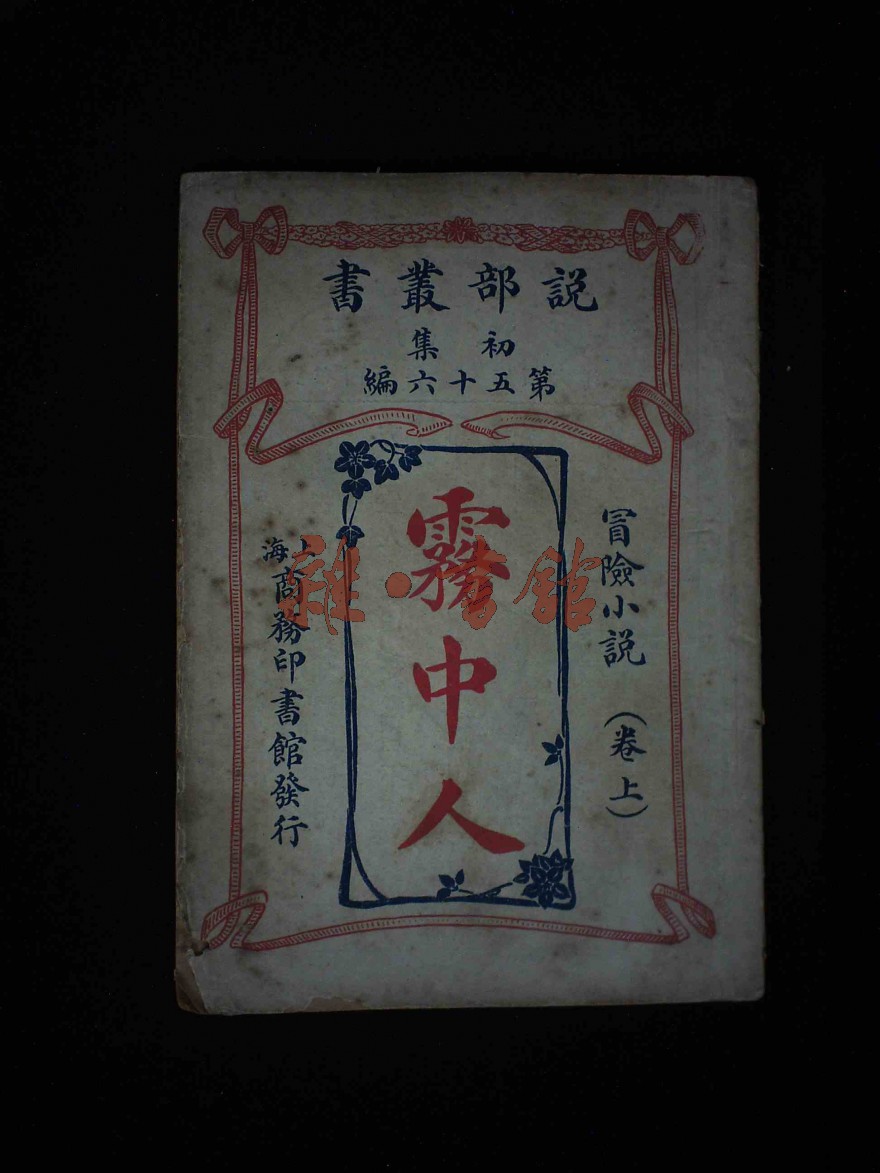 説部叢書
初集
第五十六編
冒險小説（卷上）
霧中人
上海商務印書館發行
雜·書館